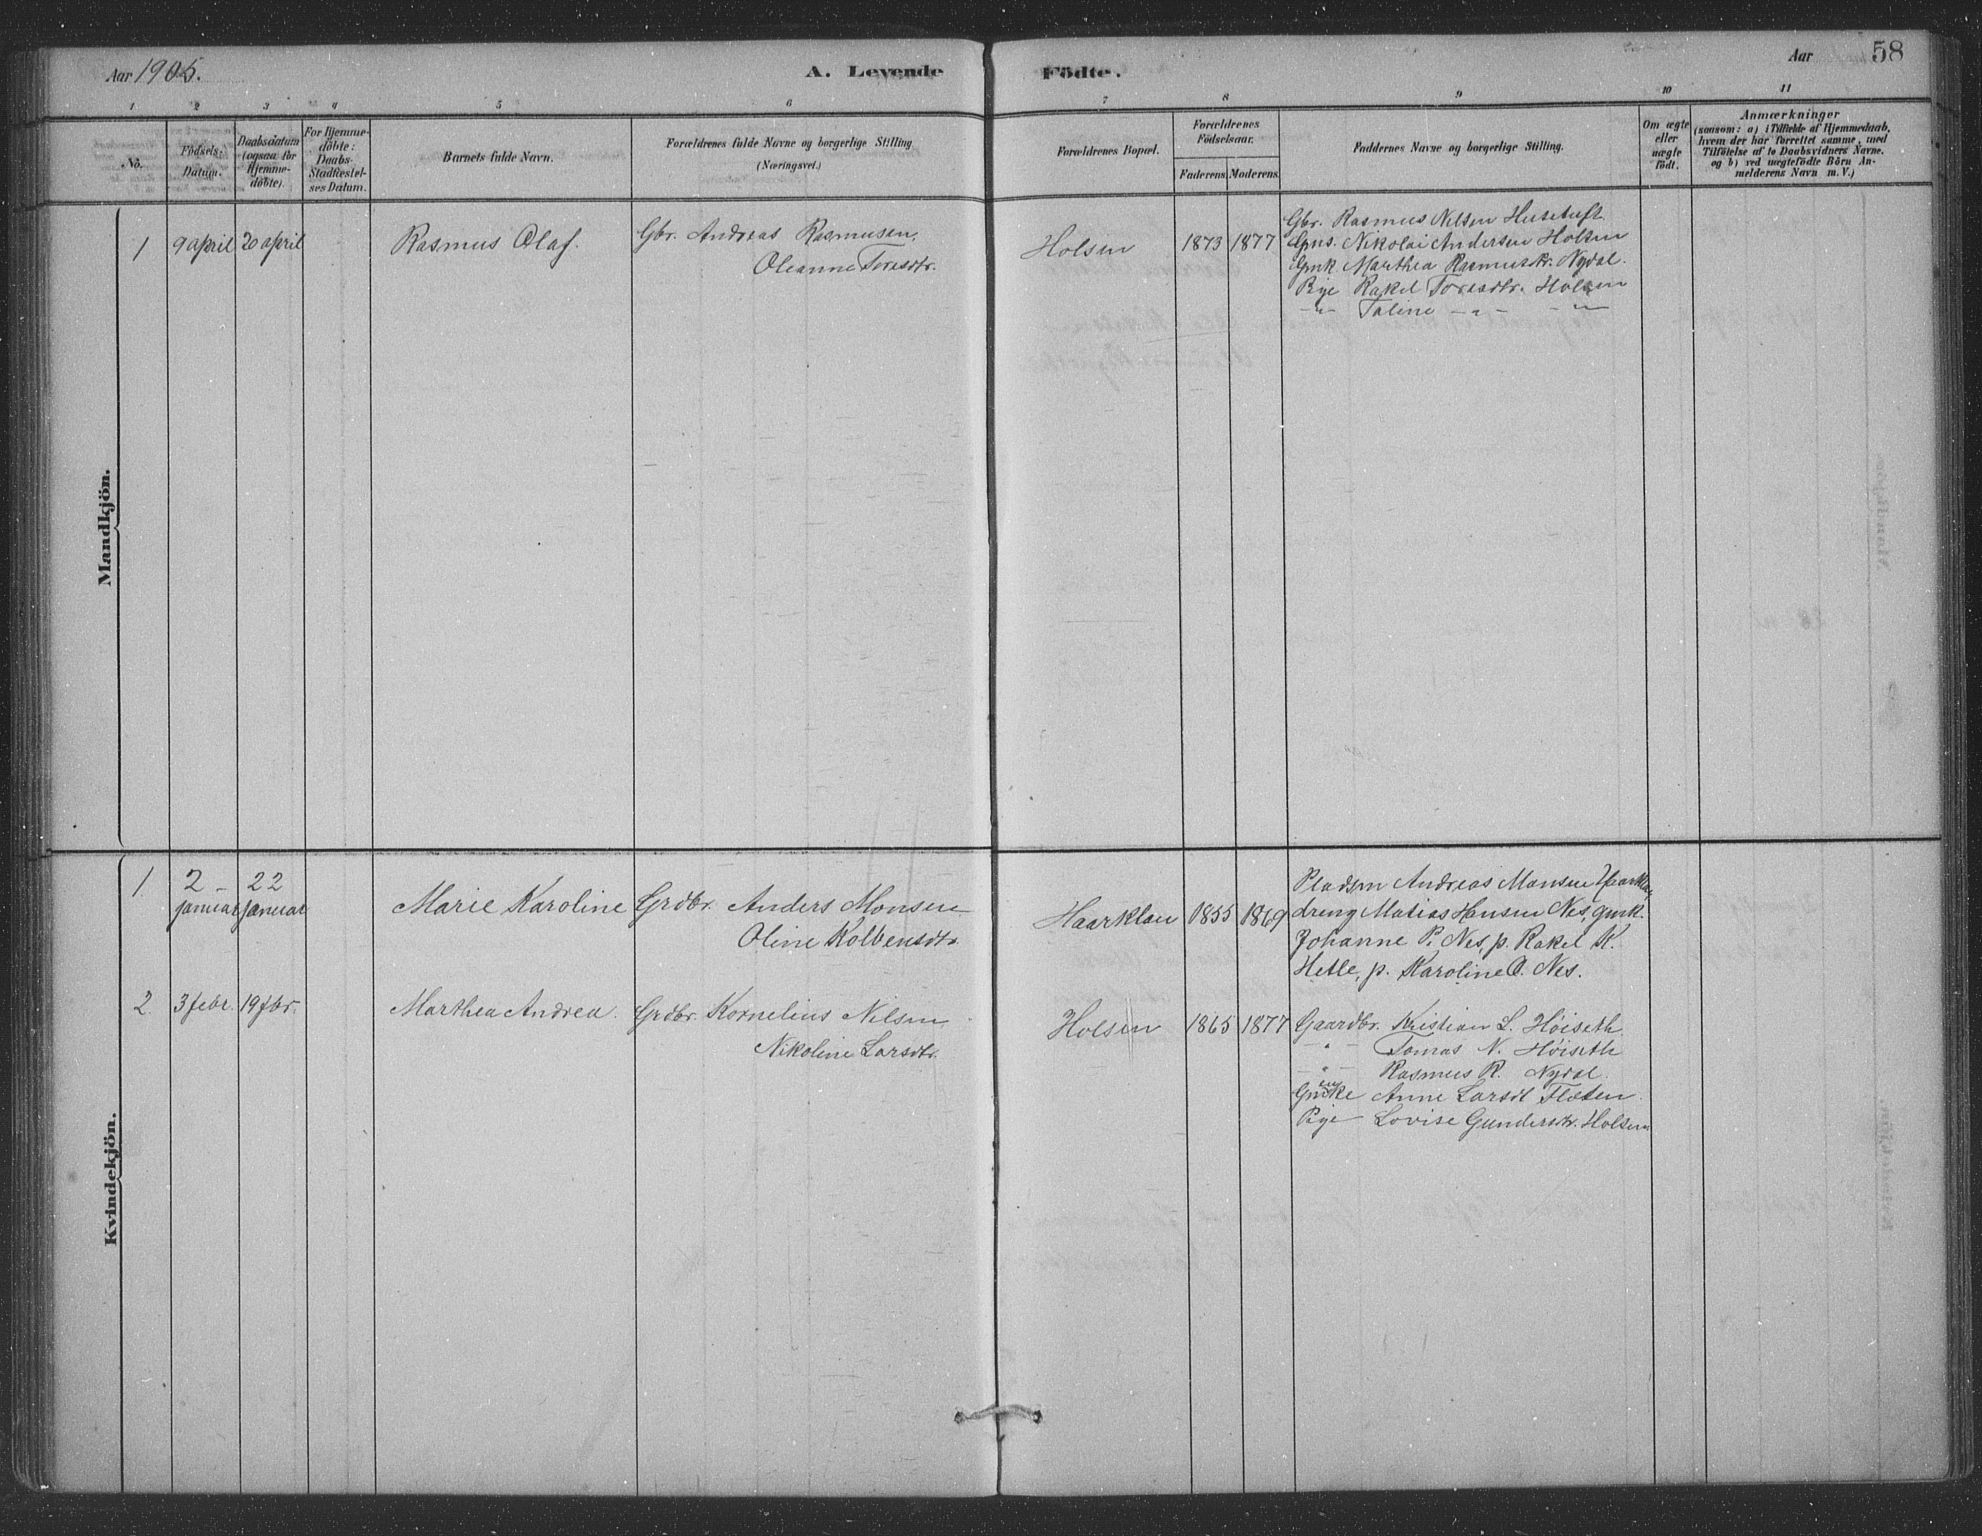 Aar 1905.
A. Levende
Födte.
Aar
58
1 2 3 4 5 6 7 8 9 10 11
No.
Födsels-
Datum.
Daabsdatum
(ogsaa for
Hjemme-
döbte).
For Hjemme-
döbte:
Daabs-
Stadfæstel-
ses Datum.
Barnets fulde Navn.
Forældrenes fulde Navne og borgerlige Stilling
(Næringsvei.)
Forældrenes Bopæl.
Forældrenes
Födselsaar.
Faderens. Moderens.
Faddernes Navne og borgerlige Stilling.
Om ægte
eller
uægte
födt.
Anmærkninger
(saasom: a) i Tilfælde af Hjemmedaab,
hvem der har forrettet samme, med
Tilföielse af to Daabsvidners Navne.
og b) ved uægtefödte Börn An-
melderens Navn m. V.)
Mandkjön.
1 9 april 20 april Rasmus Olaf. Gbr. Andreas Rasmusen,
Oleanne Toresdtr.
Holsen 1873 1877
Gbr. Rasmus Nilsen Husetuft
Gms. Nikolai Andersen Holsen
Gmk Marthea Rasmusdtr. Nydal.
Pige Rakel Toresdtr. Holsen
-"- Taline -"- -"-
Kvindekjön.
1 2 - 22
januar januar
Marie Karoline Grdbr. Anders Monsen
Oline Kolbensdtr.
Haarklau 1855 1869
Pladsm Andreas Monsen Haarklau
dreng Matias Hansen Nes, gmk.
Johanne P. Nes, p. Rakel K.
Hetle, p. Karoline O. Nes.
2 3 febr. 19 fbr. Marthea Andrea. Grdbr. Kornelius Nilsen
Nikoline Larsdtr.
Holsen 1865 1877
Gaardbr. Kristian L. Høiseth
-"- Tomas N. Høiseth
-"- Rasmus R. Nydal.
Anne Larsdt Flæten
Pige Lovise Gundersdtr. Holsen